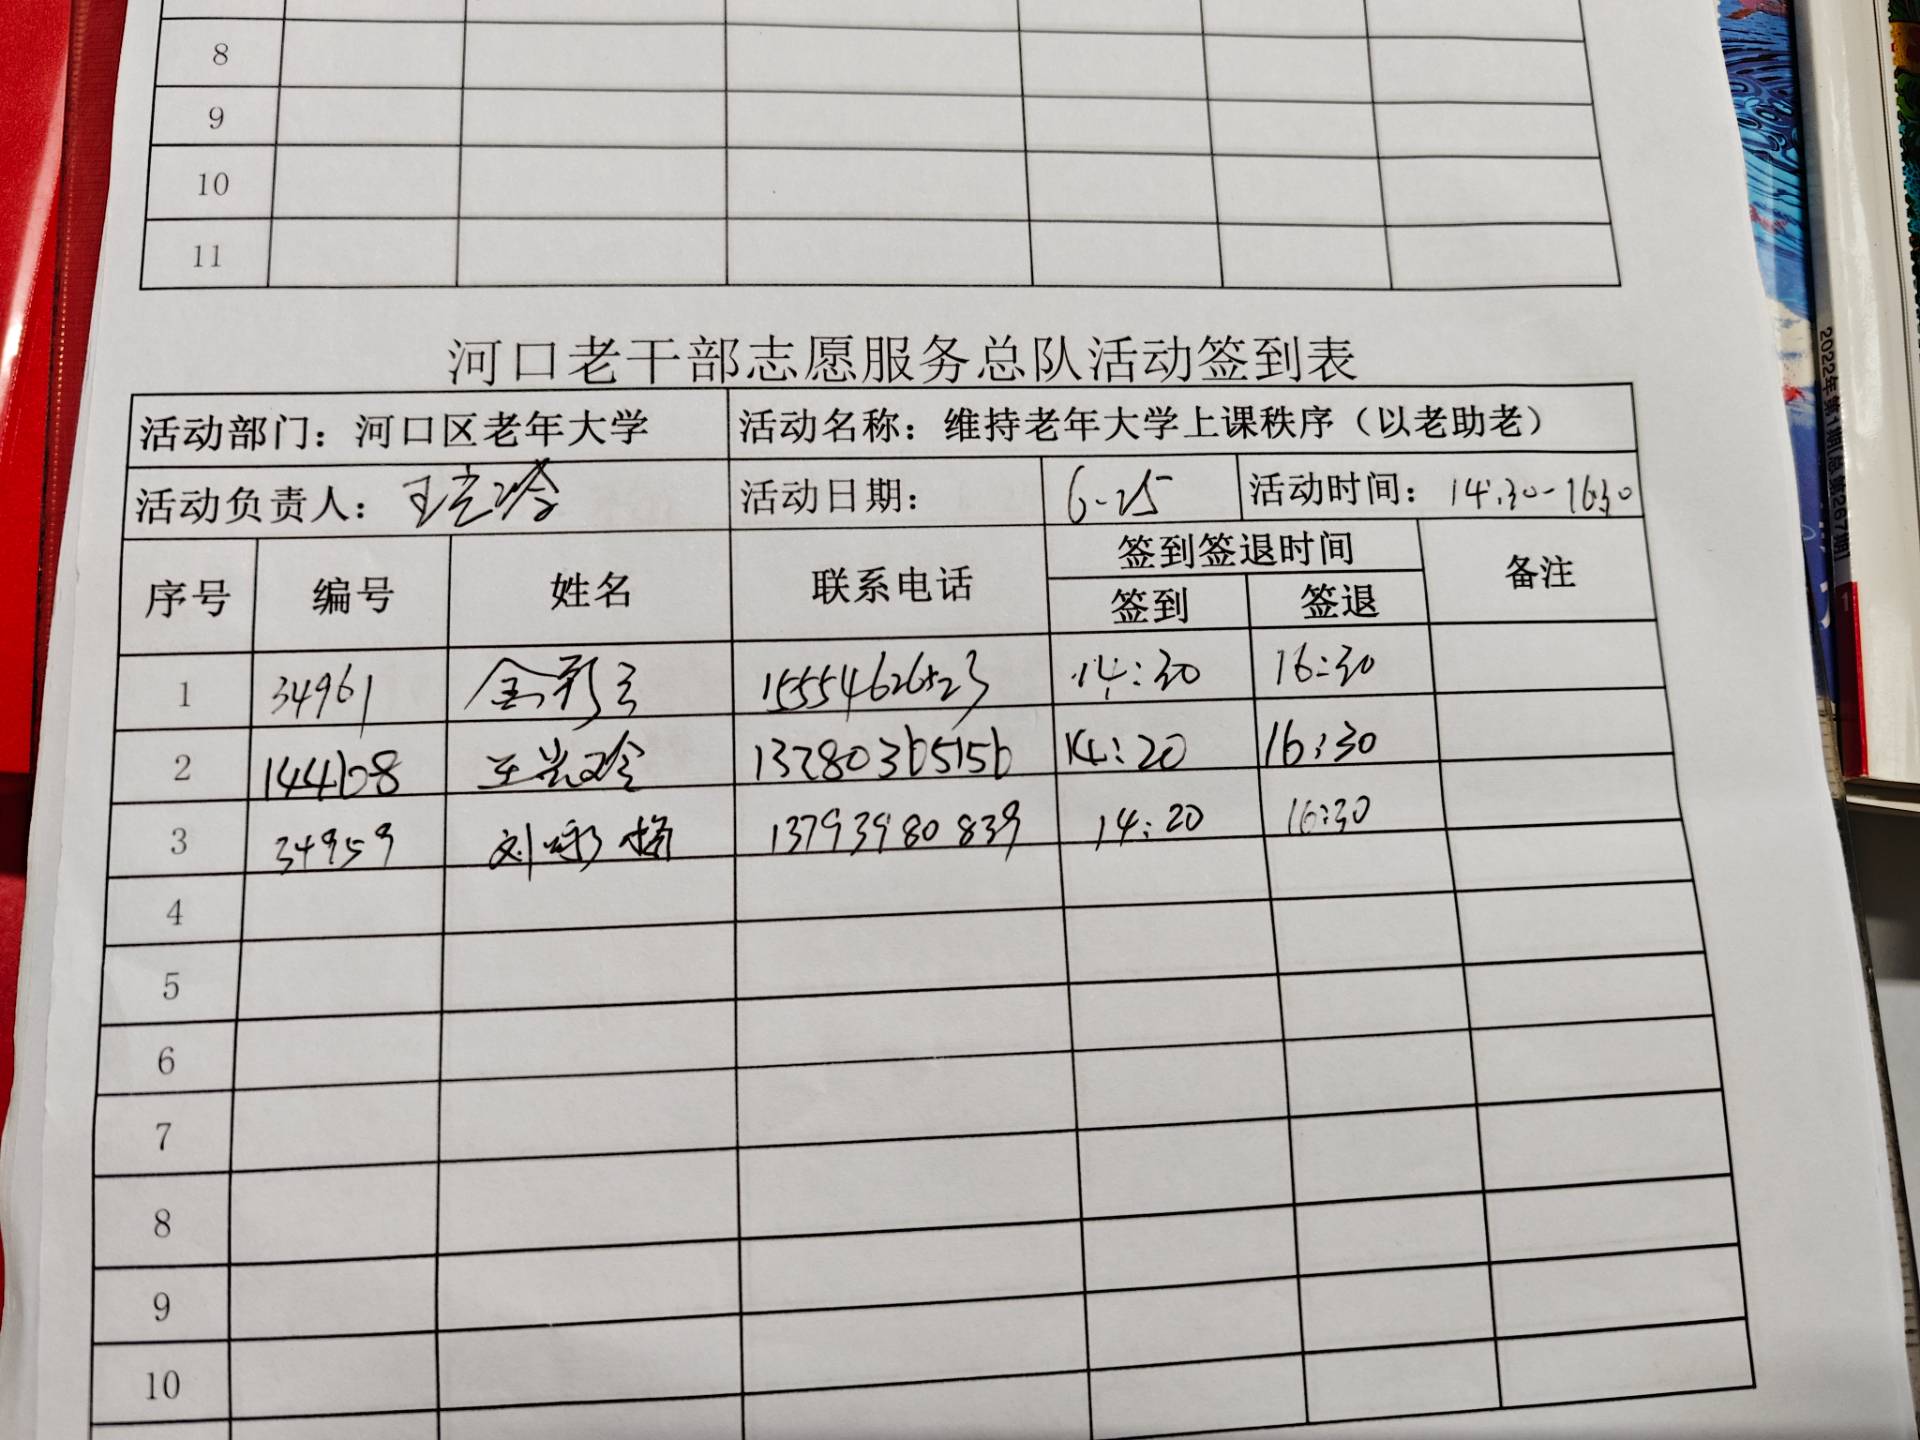 8
9
10
11
河口老干部志愿服务总队活动签到表
活动部门：河口区老年大学 活动名称：维持老年大学上课秩序（以老助老）
活动负责人： 活动日期： 6-25 活动时间：14:30-16:30
序号 编号 姓名 联系电话 签到签退时间 备注
签到 签退
1 34961 14:30 16:30
2 144168 13280365156 14:20 16:30
3 34959 13793980839 14:20 16:30
4
5
6
7
8
9
10
2022年 第11期 总第267期